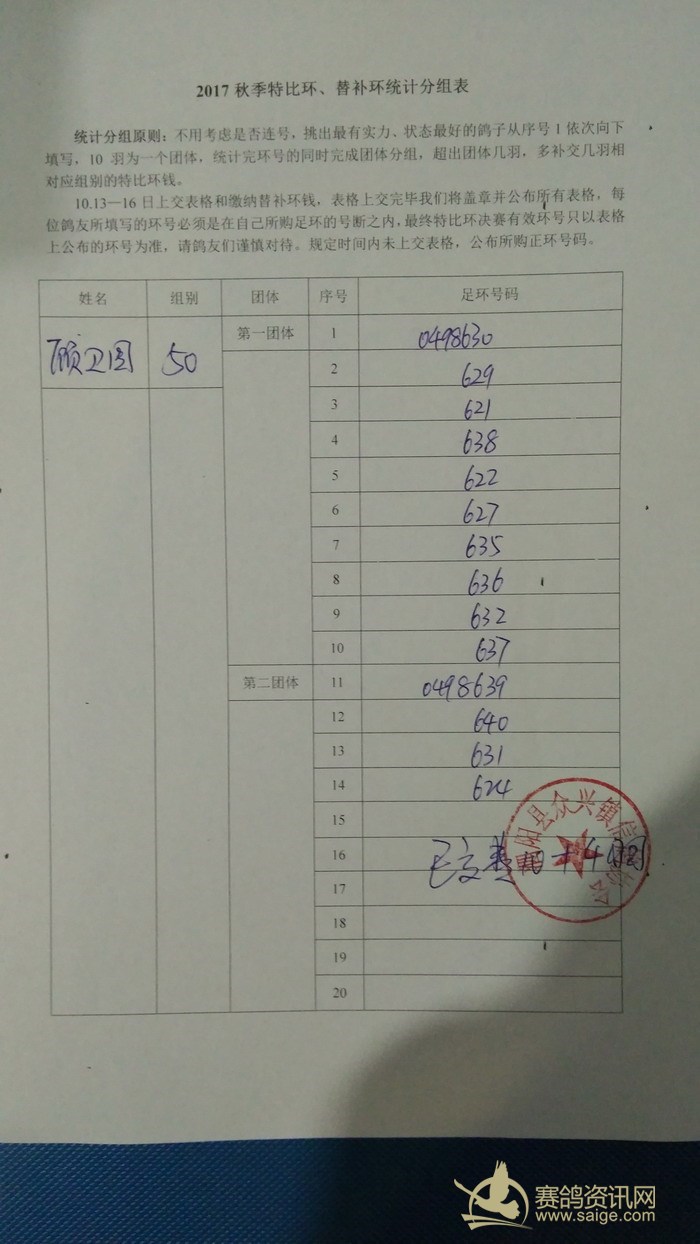 2017 秋季特比环、替补环统计分组表
统计分组原则：不用考虑是否连号，挑出最有实力、状态最好的鸽子从序号 1 依次向下
填写，10 羽为一个团体，统计完环号的同时完成团体分组，超出团体几羽，多补交几羽相
对应组别的特比环钱。
10.13—16 日上交表格和缴纳替补环钱，表格上交完毕我们将盖章并公布所有表格，每
位鸽友所填写的环号必须是在自己所购足环的号断之内，最终特比环决赛有效环号只以表格
上公布的环号为准，请鸽友们谨慎对待。规定时间内未上交表格，公布所购正环号码。
姓名 组别 团体 序号 足环号码
顾卫国 50 第一团体 1 0498630
2 629
3 621
4 638
5 622
6 627
7 635
8 636
9 632
10 637
第二团体 11 0498639
12 640
13 631
14 624
15
16
17
18
19
20
阳县众兴镇信
赛鸽资讯网
www.saige.com